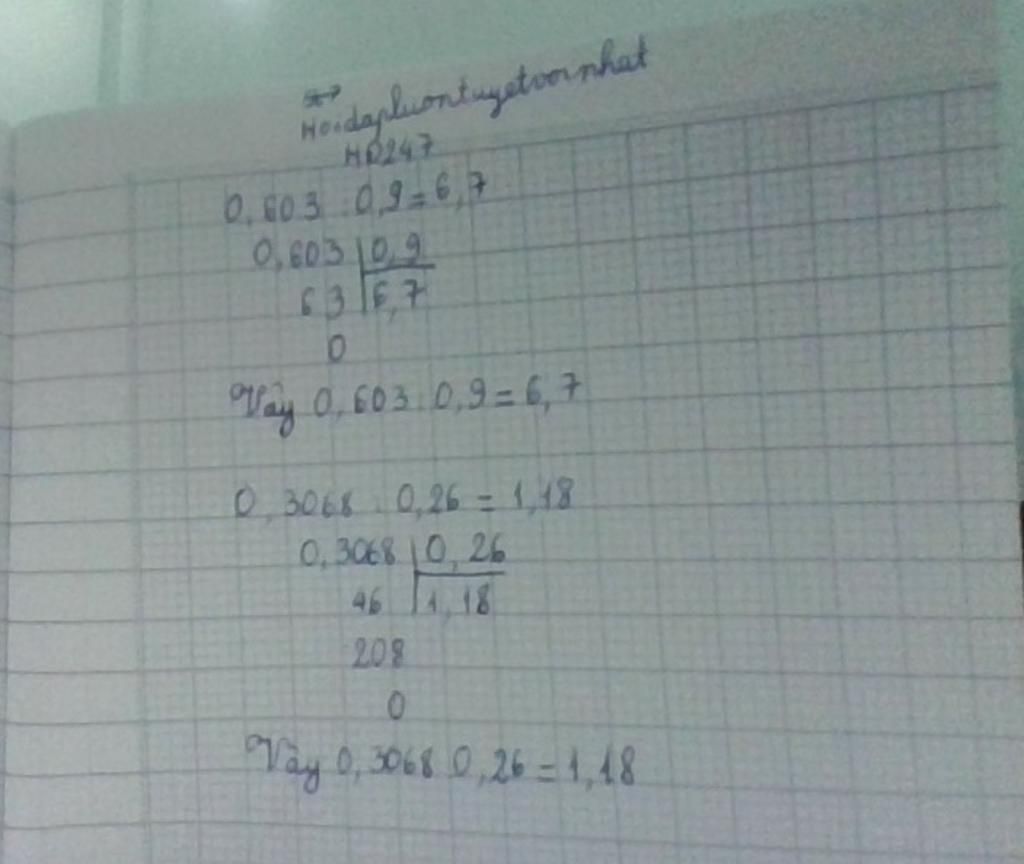 Hoidapluontuyetvoinhat
HD247
0,603 : 0,9 = 6,7
0,603 0,9
63 6,7
0
Vậy 0,603 : 0,9 = 6,7
0,3068 : 0,26 = 1,18
0,3068 0,26
46 1,18
208
0
Vậy 0,3068 0,26 = 1,18